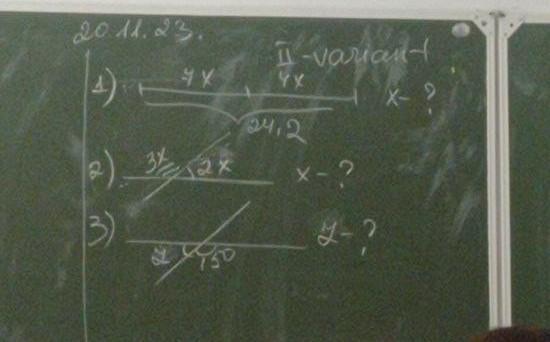 20.11.23.
II-variant
1) 7x 4x x-?
24,2
2) 3x 2x x-?
3) z-?
z 150